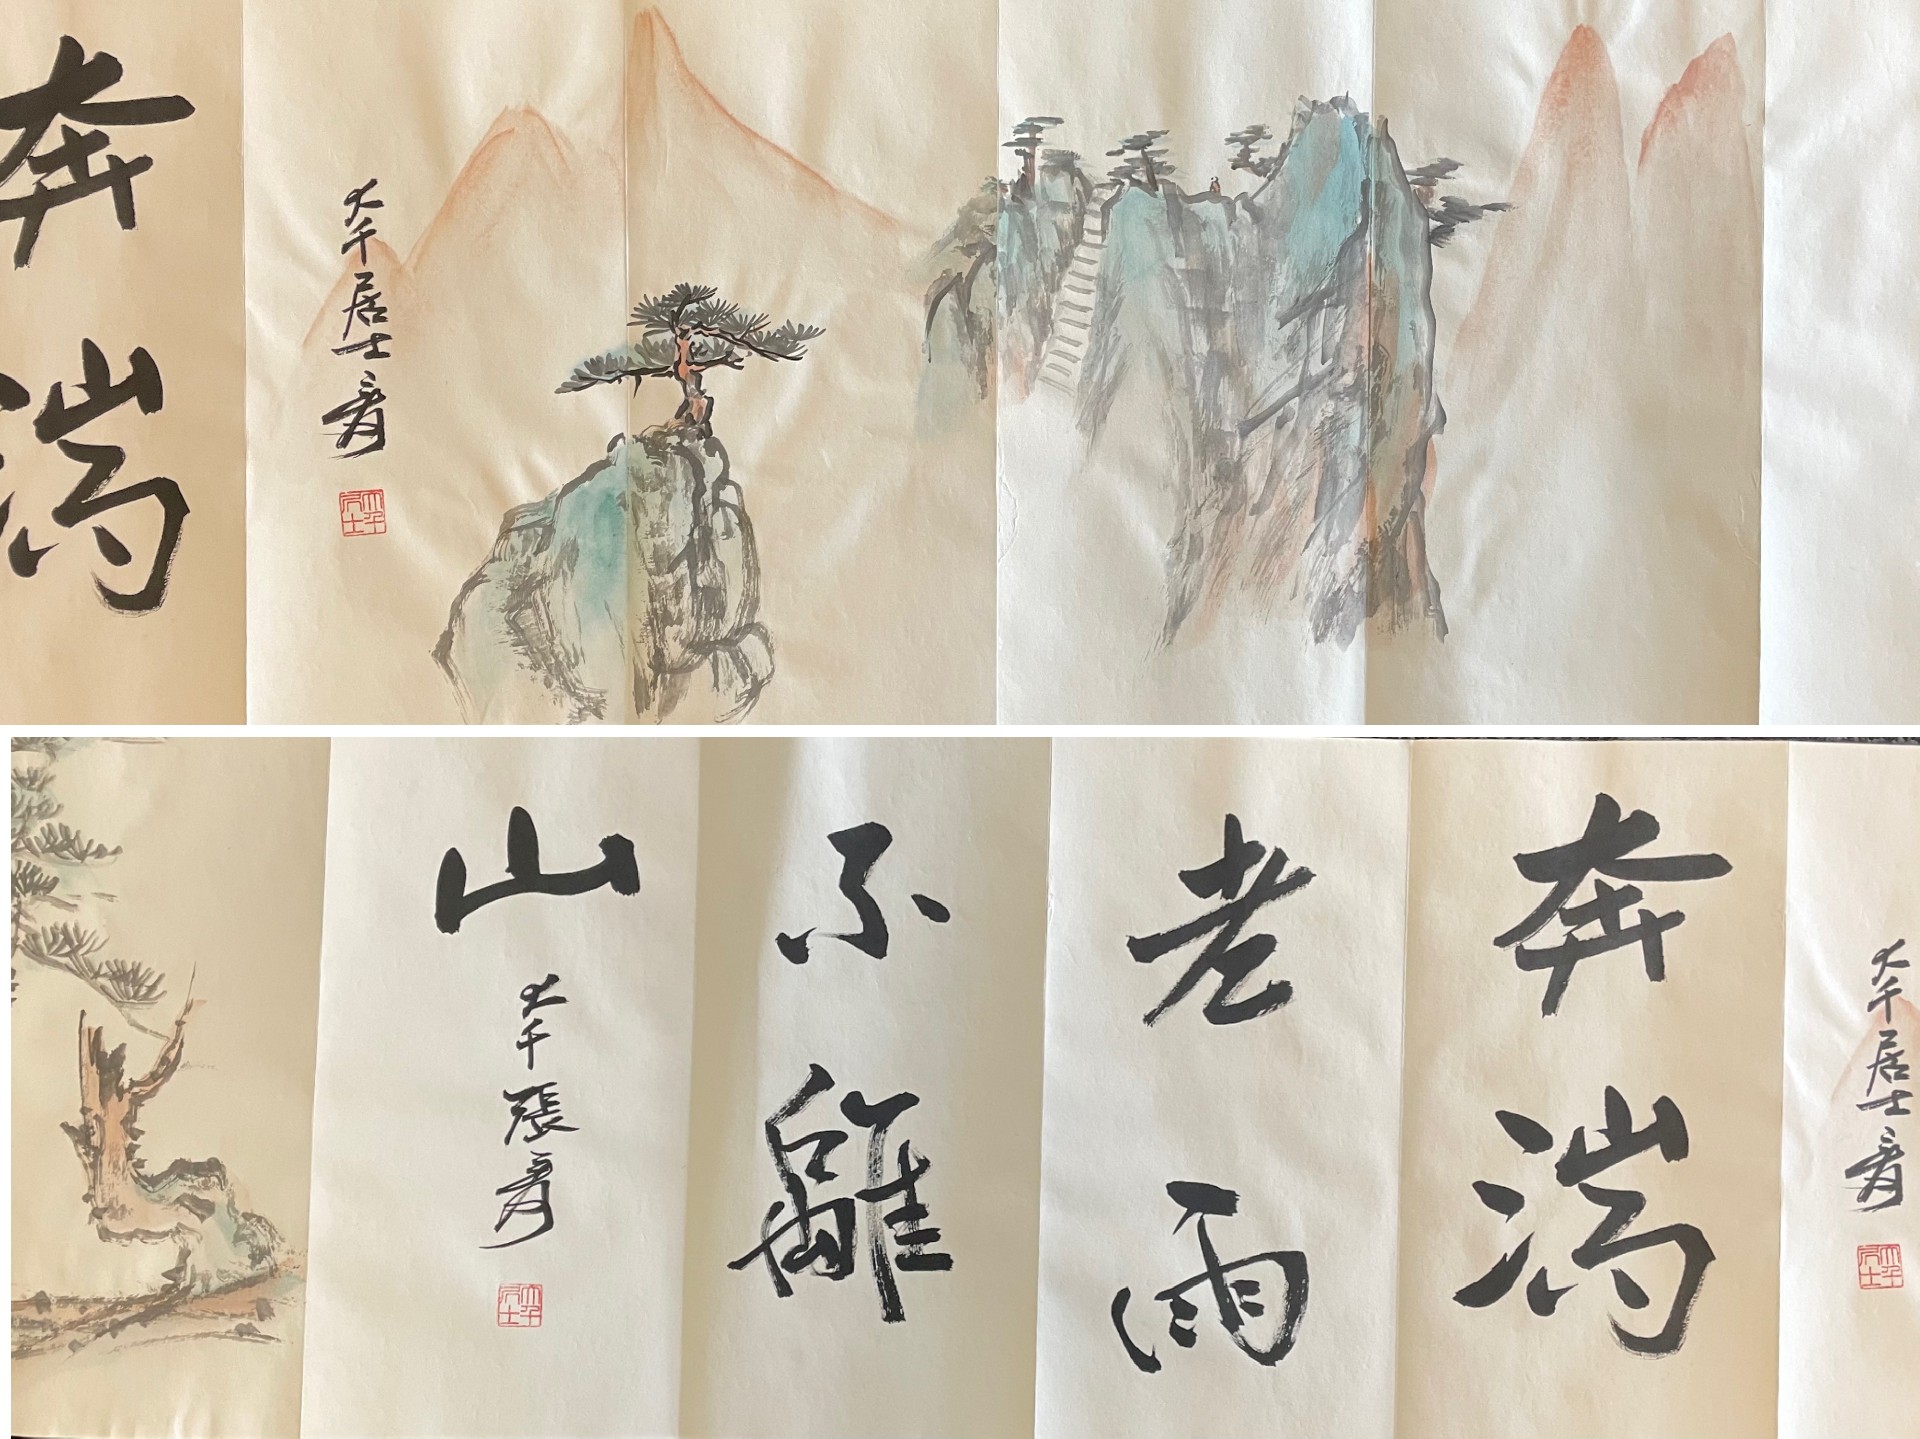 大千居士爰
大千居士
奔湍
大千居士爰
大千居士
奔湍
老雨
不離
山
大千張爰
大千居士